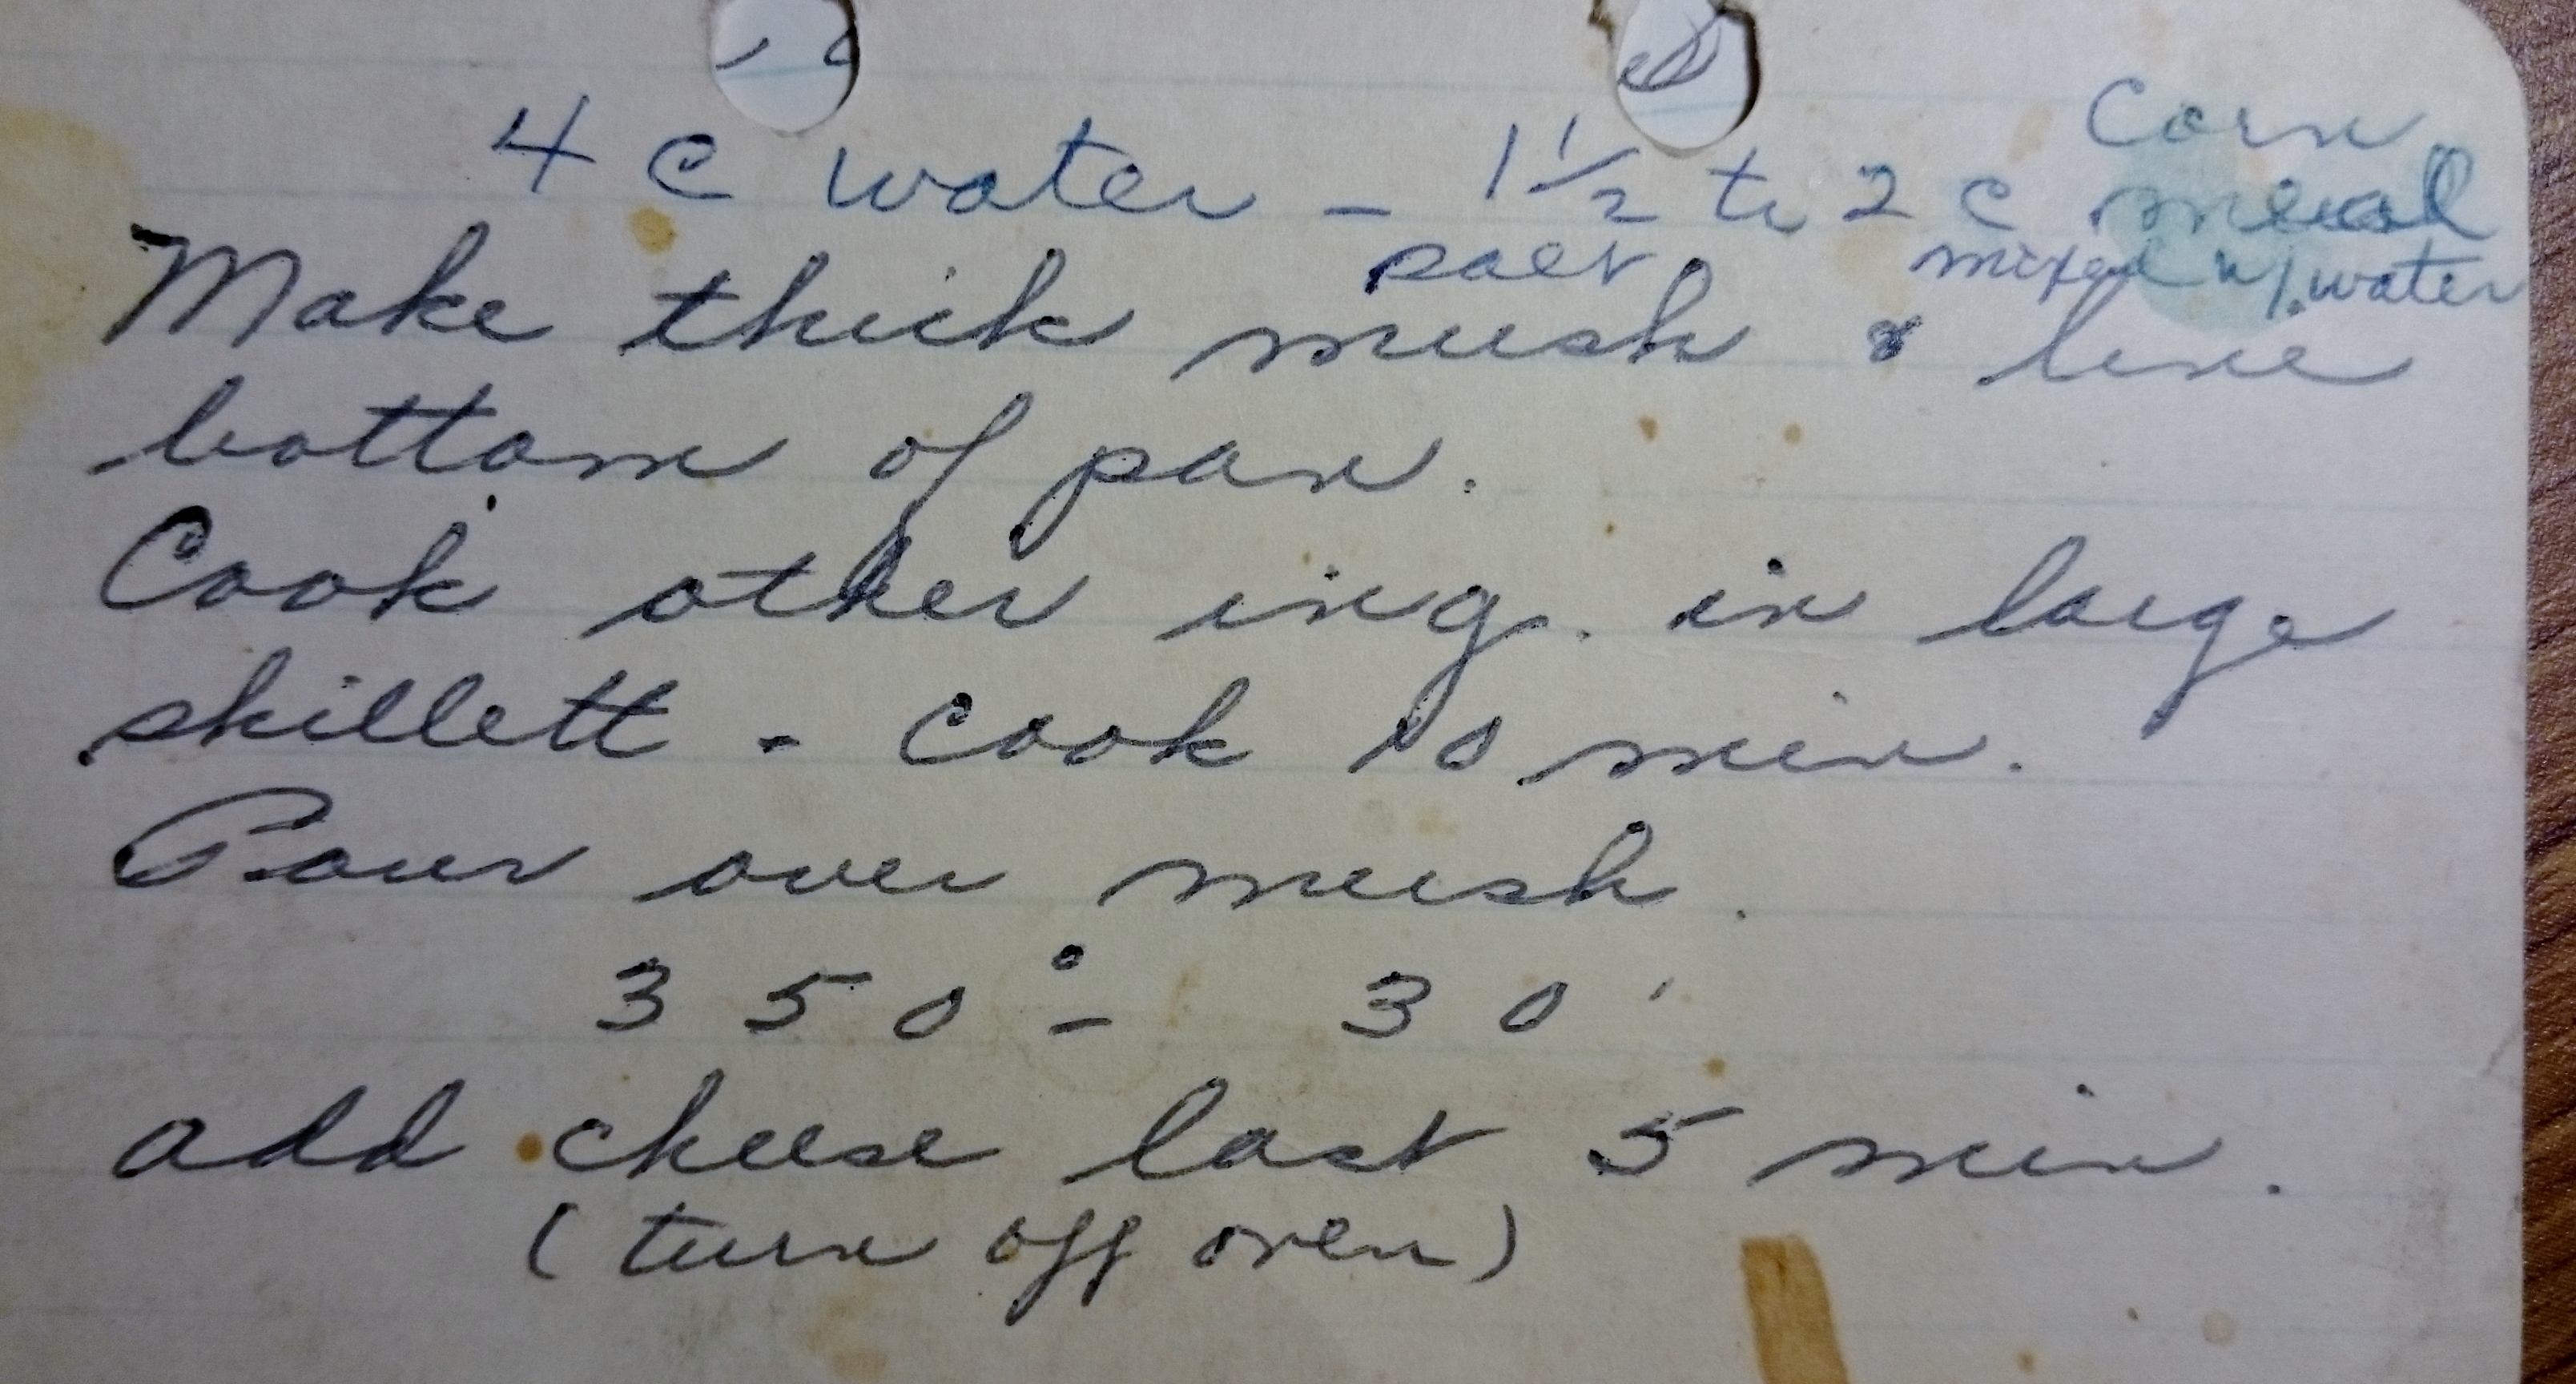 Corn
4 c water - 1 1/2 to 2 c meal
salt mixed w/ water
Make thick mush & line
bottom of pan.
Cook other ing. in large
skillett - cook 10 min.
Pour over mush.
350° - 30'
add cheese last 5 min.
(turn off oven)